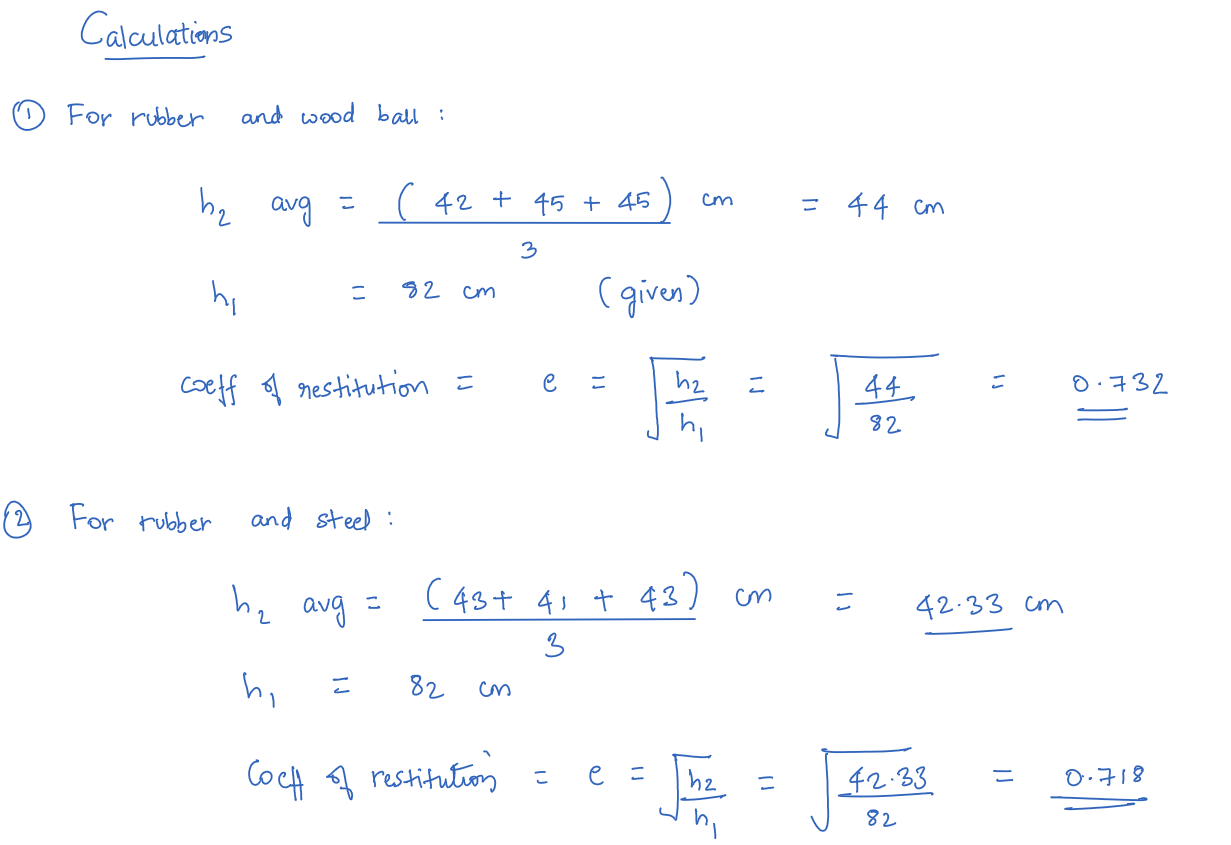 Calculations
① For rubber and wood ball :
h₂ avg = (42 + 45 + 45) cm / 3 = 44 cm
h₁ = 82 cm (given)
coeff of restitution = e = √(h₂/h₁) = √(44/82) = 0.732
② For rubber and steel :
h₂ avg = (43 + 41 + 43) cm / 3 = 42.33 cm
h₁ = 82 cm
Coeff of restitution = e = √(h₂/h₁) = √(42.33/82) = 0.718